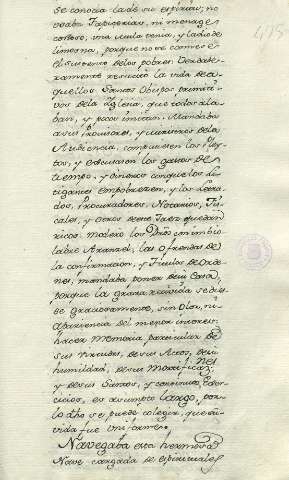 se conocia la de su espiritu; no
usaba Tapicerias, ni menage
costoso, una mula tenia, y la dio de
limosna, porque no se comiese
el sustento de los pobres. Verdade-
ramente resucitò la vida de a-
quellos Santos Obispos primiti-
vos de la Iglesia, que todos ala-
ban, y pocos imitan. Mandaba
a sus Provisores, y Ministros de la
Audiencia, compusiesen los Pley-
tos, y escusasen los gastos de
tiempo, y dineros con que los Li-
tigantes empobrecen, y los Letra-
dos, Procuradores, Notarios, Fis-
cales, y otros de este Jaez quedan
ricos. Moderò los Dros con imbio-
lable Aranzel, las ofrendas de
la confirmacion, y Titulos de Orde-
nes, mandaba poner de su Casa,
porque la gracia recivida se die-
se graciosamente, sin olor, ni
apariencia del menor interes.
hacer memoria particular de
sus virtudes, de sus Actos, de su
humildad, de sus Mortificaz.nes
y de sus santos, y continuos Exer-
cicios, es asumpto largo, por
lo dho se puede colegir, que su
vida fue uniforme.
Navegaba esta hermosa
Nave cargada de espirituales